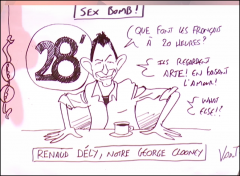 SEX BOMB!
28'
QUE FONT LES FRANÇAIS
À 20 HEURES?
ILS REGARDENT
ARTE! EN FAISANT
L'AMOUR!
WHAT
ELSE!?
RENAUD DÉLY, NOTRE GEORGE CLOONEY